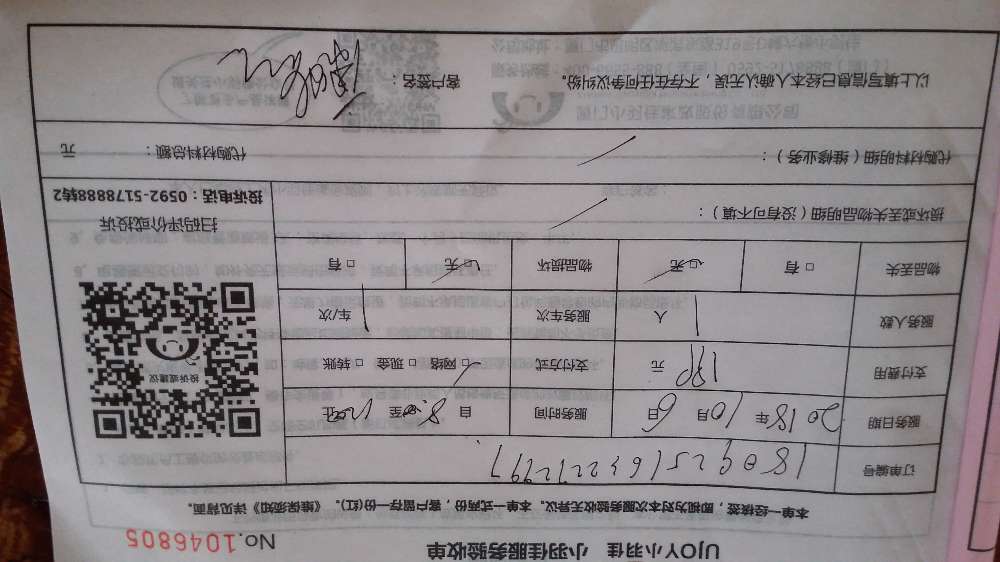 UJOY小羽佳 小羽佳服务验收单
No.1046805
本单一经核签,即视为对本次服务验收无异议。本单一式两份,客户留存一份(红)。《维保须知》详见背面。
订单编号
服务日期 2018年10月6日 服务时间 自8:00至 止
支付费用 元 支付方式 □网络 □现金 □转账
服务人数 1人 服务车次 1车/次
物品丢失 □有 □无 物品损坏 □无 □有
投诉或建议
扫码评价或投诉
投诉电话:0592-5178888转2
损坏或丢失物品明细(没有可不填):
代购材料明细(维修业务): 代购材料总额: 元
以上填写信息已经本人确认无误,不存在任何争议纠纷。 客户签名: